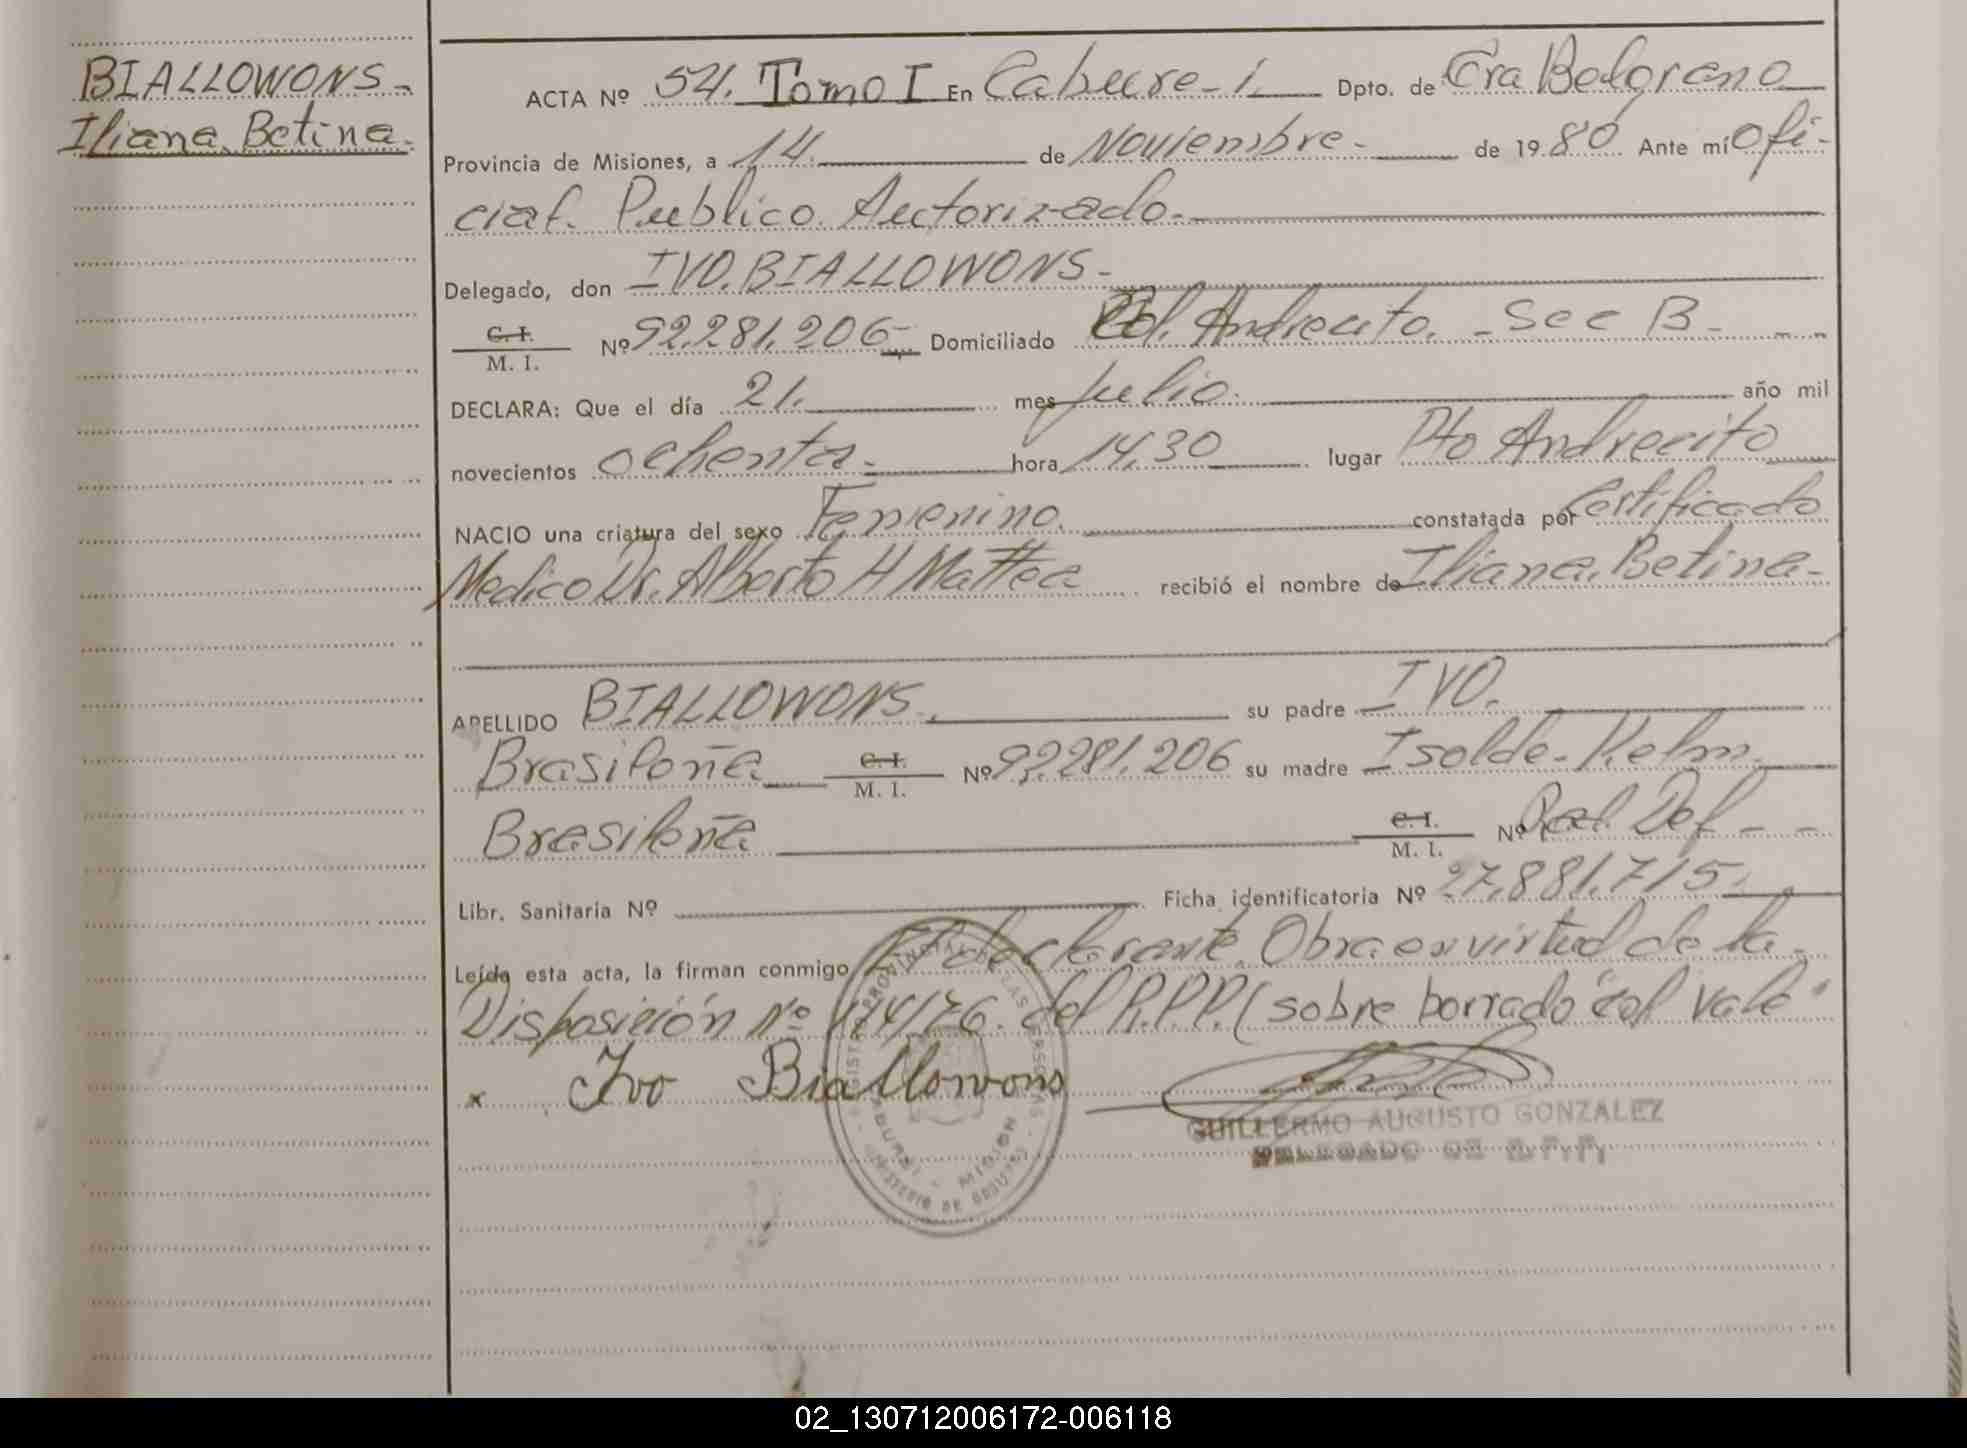 BIALLOWONS-
Iliana Betina.
ACTA Nº 54. Tomo I En Cabure-i. Dpto. de Gra Belgrano
Provincia de Misiones, a 14 de Noviembre- de 1980 Ante mí Ofi-
cial. Publico. Autorizado.-
Delegado, don IVO. BIALLOWONS-
C. I.
M. I. Nº 92.281.206- Domiciliado Col. Andrecito. - Sec B -
DECLARA: Que el día 21. mes Julio. año mil
novecientos ochenta.- hora 14,30 lugar Pto Andrecito
NACIO una criatura del sexo Femenino. constatada por Certificado
Medico Dr. Alberto H Mattea recibió el nombre de Iliana. Betina-
APELLIDO BIALLOWONS. su padre IVO.
Brasileña C. I.
M. I. Nº 92.281.206 su madre Isolde-Kelm.
Brasileña C. I.
M. I. Nº Def - -
Libr. Sanitaria Nº Ficha identificatoria Nº 27.881.715.
Leída esta acta, la firman conmigo El declarante. Obra en virtud de la
Disposición Nº 174/76. del R.P.P. (sobre borrado "col vale"
x Ivo Biallowons
GUILLERMO AUGUSTO GONZALEZ
DELEGADO DE R.P.P.
REGISTRO PROVINCIAL DE LAS PERSONAS
02_130712006172-006118